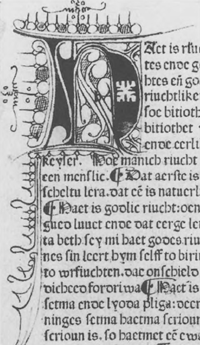 Aet is riu
tes ende go
htes eñ go
riuchtlike
ſoe bitioth
bitiothet
ende eerli
keyſer. Hoe manich riucht
een menſlic. Dat aerſte is
ſcheltu lera. dat is natuerl
Haet is godlic riucht: oen
gued luuet ende dat eerge le
ta beth ſey mi haet godes riu
nes ſin leert hym ſelff to biri
to wrfiuchten. dae onſchield
Haet is
ſetma ende lyoda pliga: deer
ninges ſetma haetma ſerioun
ſerioun is. ſo haetmet